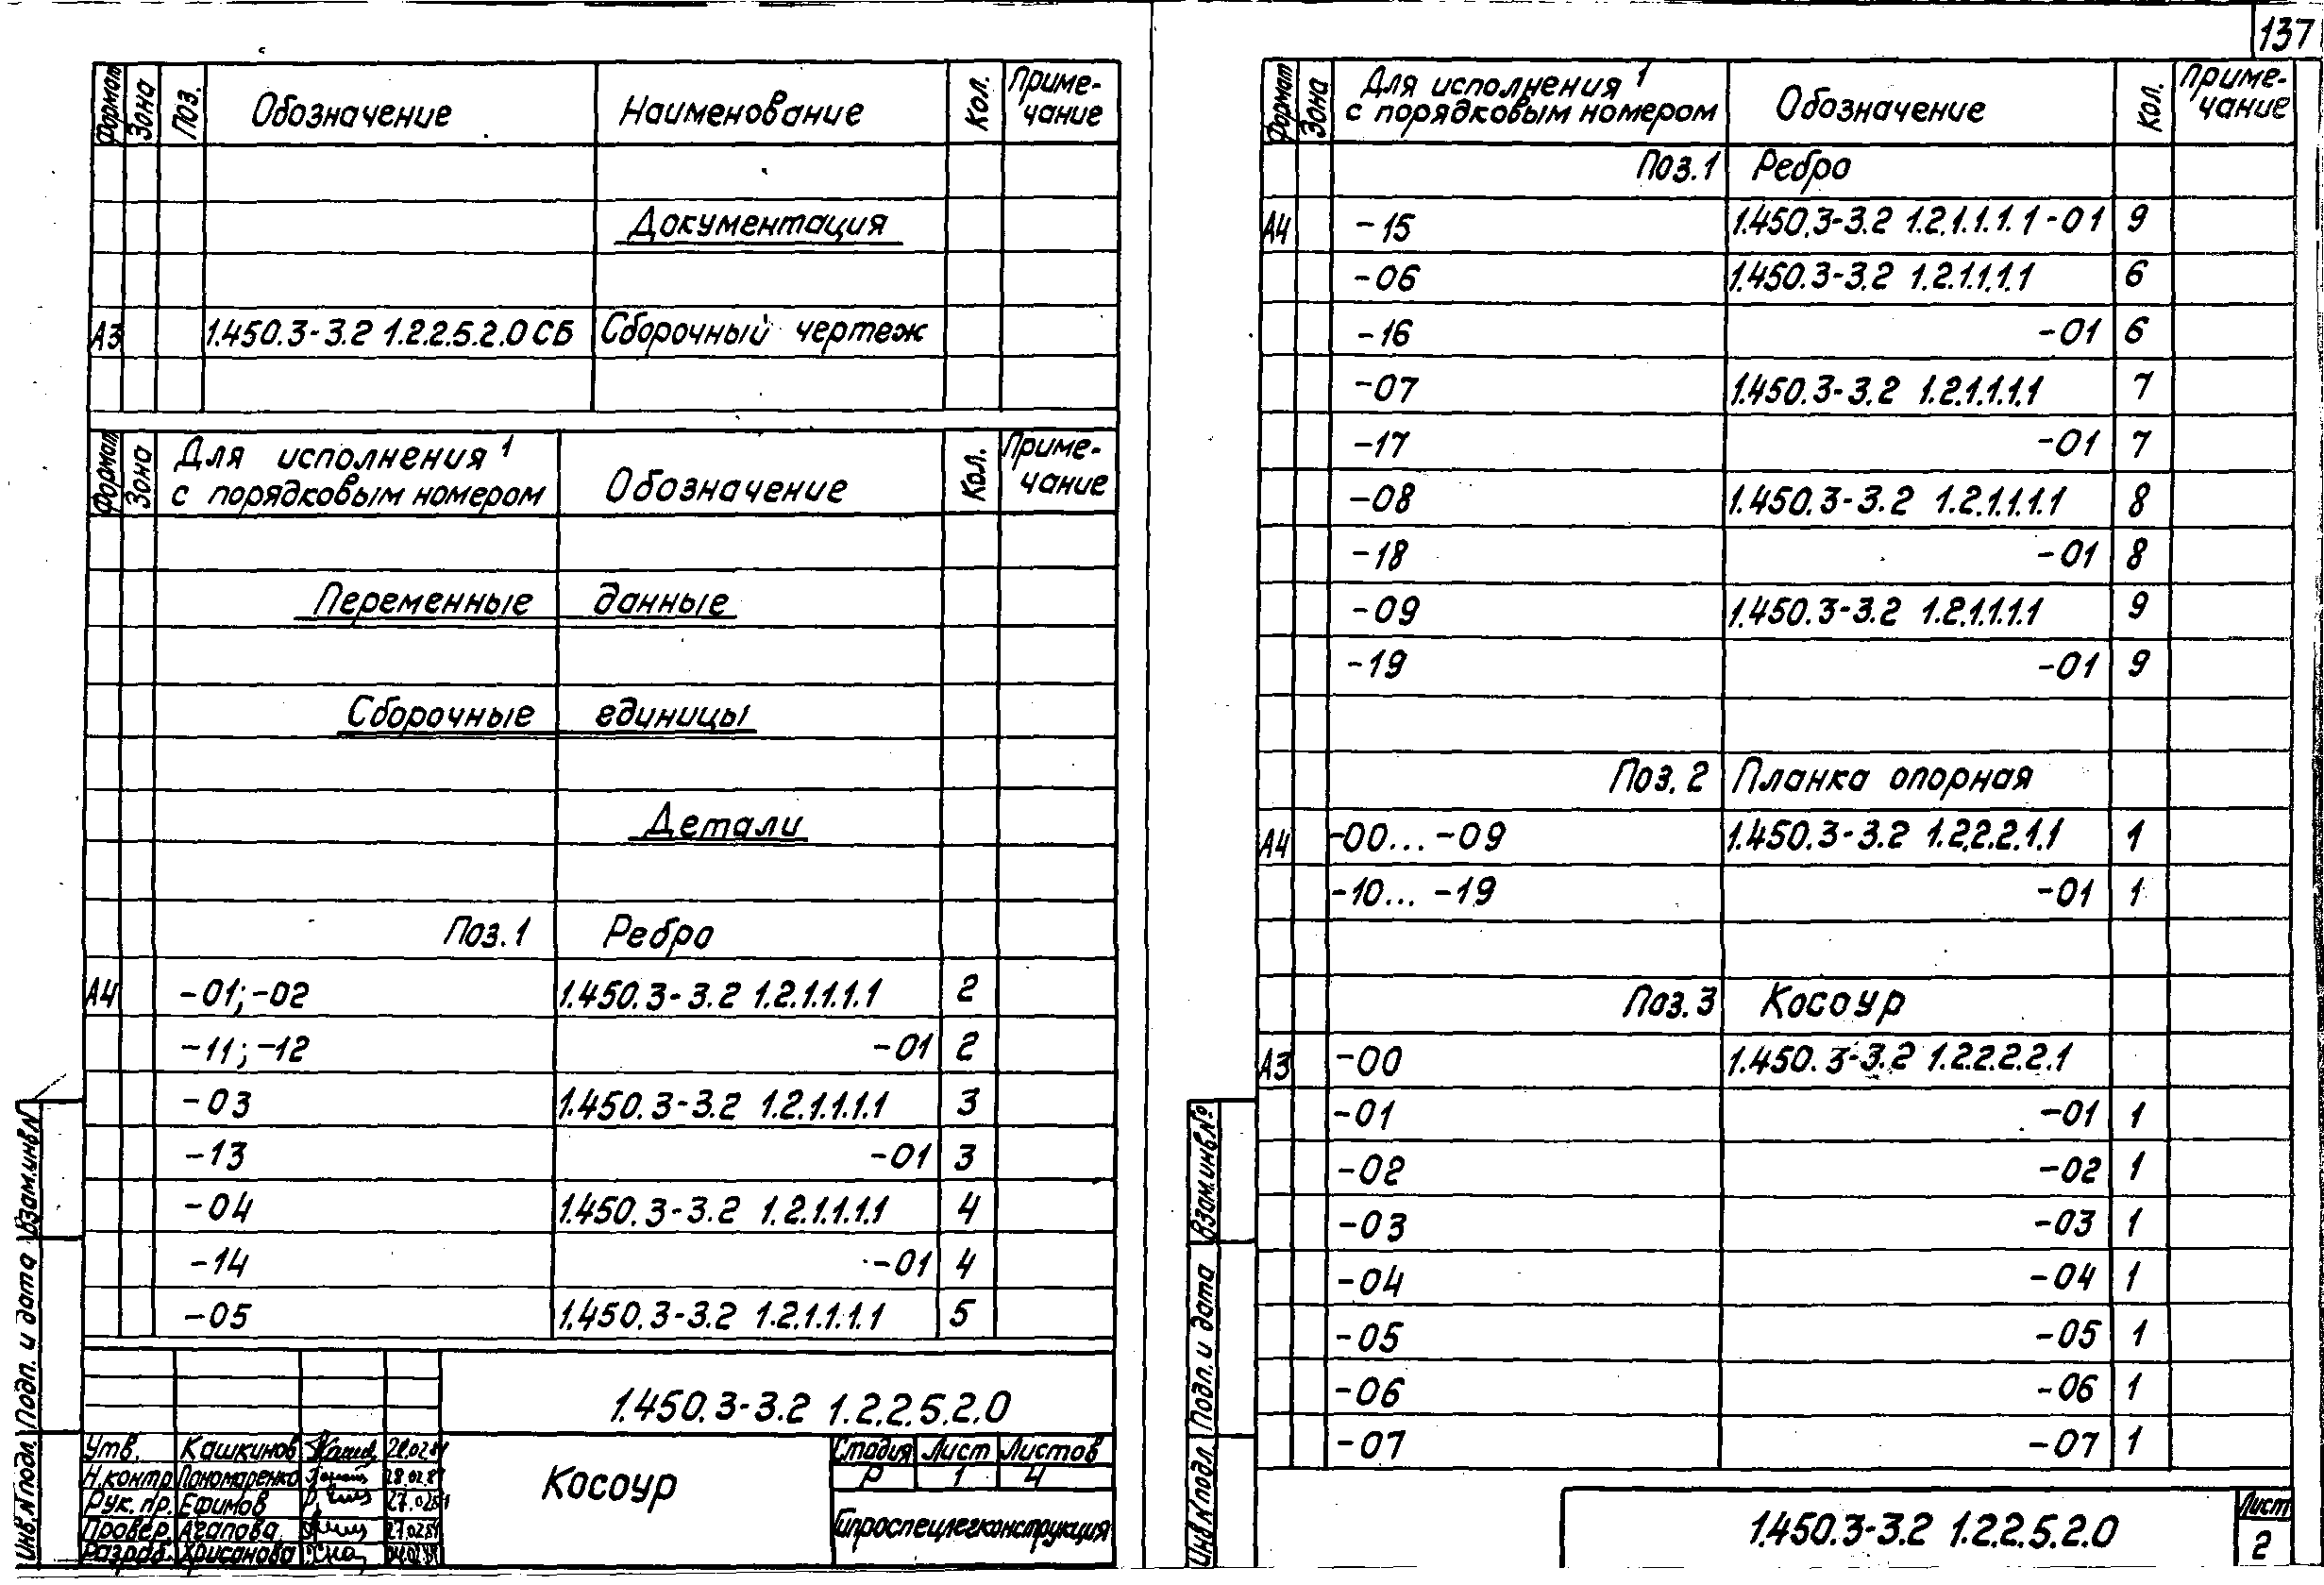 137
Формат Зона Поз. Обозначение Наименование Кол. Приме-чание
Документация
А3 1.450.3-3.2 1.2.2.5.2.0 СБ Сборочный чертеж
Формат Зона Для исполнения 1 с порядковым номером Обозначение Кол. Приме-чание
Переменные данные
Сборочные единицы
Детали
Поз. 1 Ребро
А4 -01; -02 1.450.3-3.2 1.2.1.1.1.1 2
-11; -12 -01 2
-03 1.450.3-3.2 1.2.1.1.1.1 3
-13 -01 3
-04 1.450.3-3.2 1.2.1.1.1.1 4
-14 -01 4
-05 1.450.3-3.2 1.2.1.1.1.1 5
1.450.3-3.2 1.2.2.5.2.0
Утв. Кашкинов
Н.контр Пономаренко 28.02.8
Рук. пр. Ефимов
Провер. Агапова
Разраб. Хрисанова
Косоур
Стадия Лист Листов
Р 1 4
Гипроспецлегконструкция
Инв.N подл. Подп. и дата Взам.инв.N
Формат Зона Для исполнения 1 с порядковым номером Обозначение Кол. Приме-чание
Поз. 1 Ребро
А4 -15 1.450.3-3.2 1.2.1.1.1.1-01 9
-06 1.450.3-3.2 1.2.1.1.1.1 6
-16 -01 6
-07 1.450.3-3.2 1.2.1.1.1.1 7
-17 -01 7
-08 1.450.3-3.2 1.2.1.1.1.1 8
-18 -01 8
-09 1.450.3-3.2 1.2.1.1.1.1 9
-19 -01 9
Поз. 2 Планка опорная
А4 -00... -09 1.450.3-3.2 1.2.2.2.1.1 1
-10... -19 -01 1
Поз. 3 Косоур
А3 -00 1.450.3-3.2 1.2.2.2.2.1
-01 -01 1
-02 -02 1
-03 -03 1
-04 -04 1
-05 -05 1
-06 -06 1
-07 -07 1
1.450.3-3.2 1.2.2.5.2.0
Лист
2
Инв.N подл. Подп. и дата Взам.инв.№